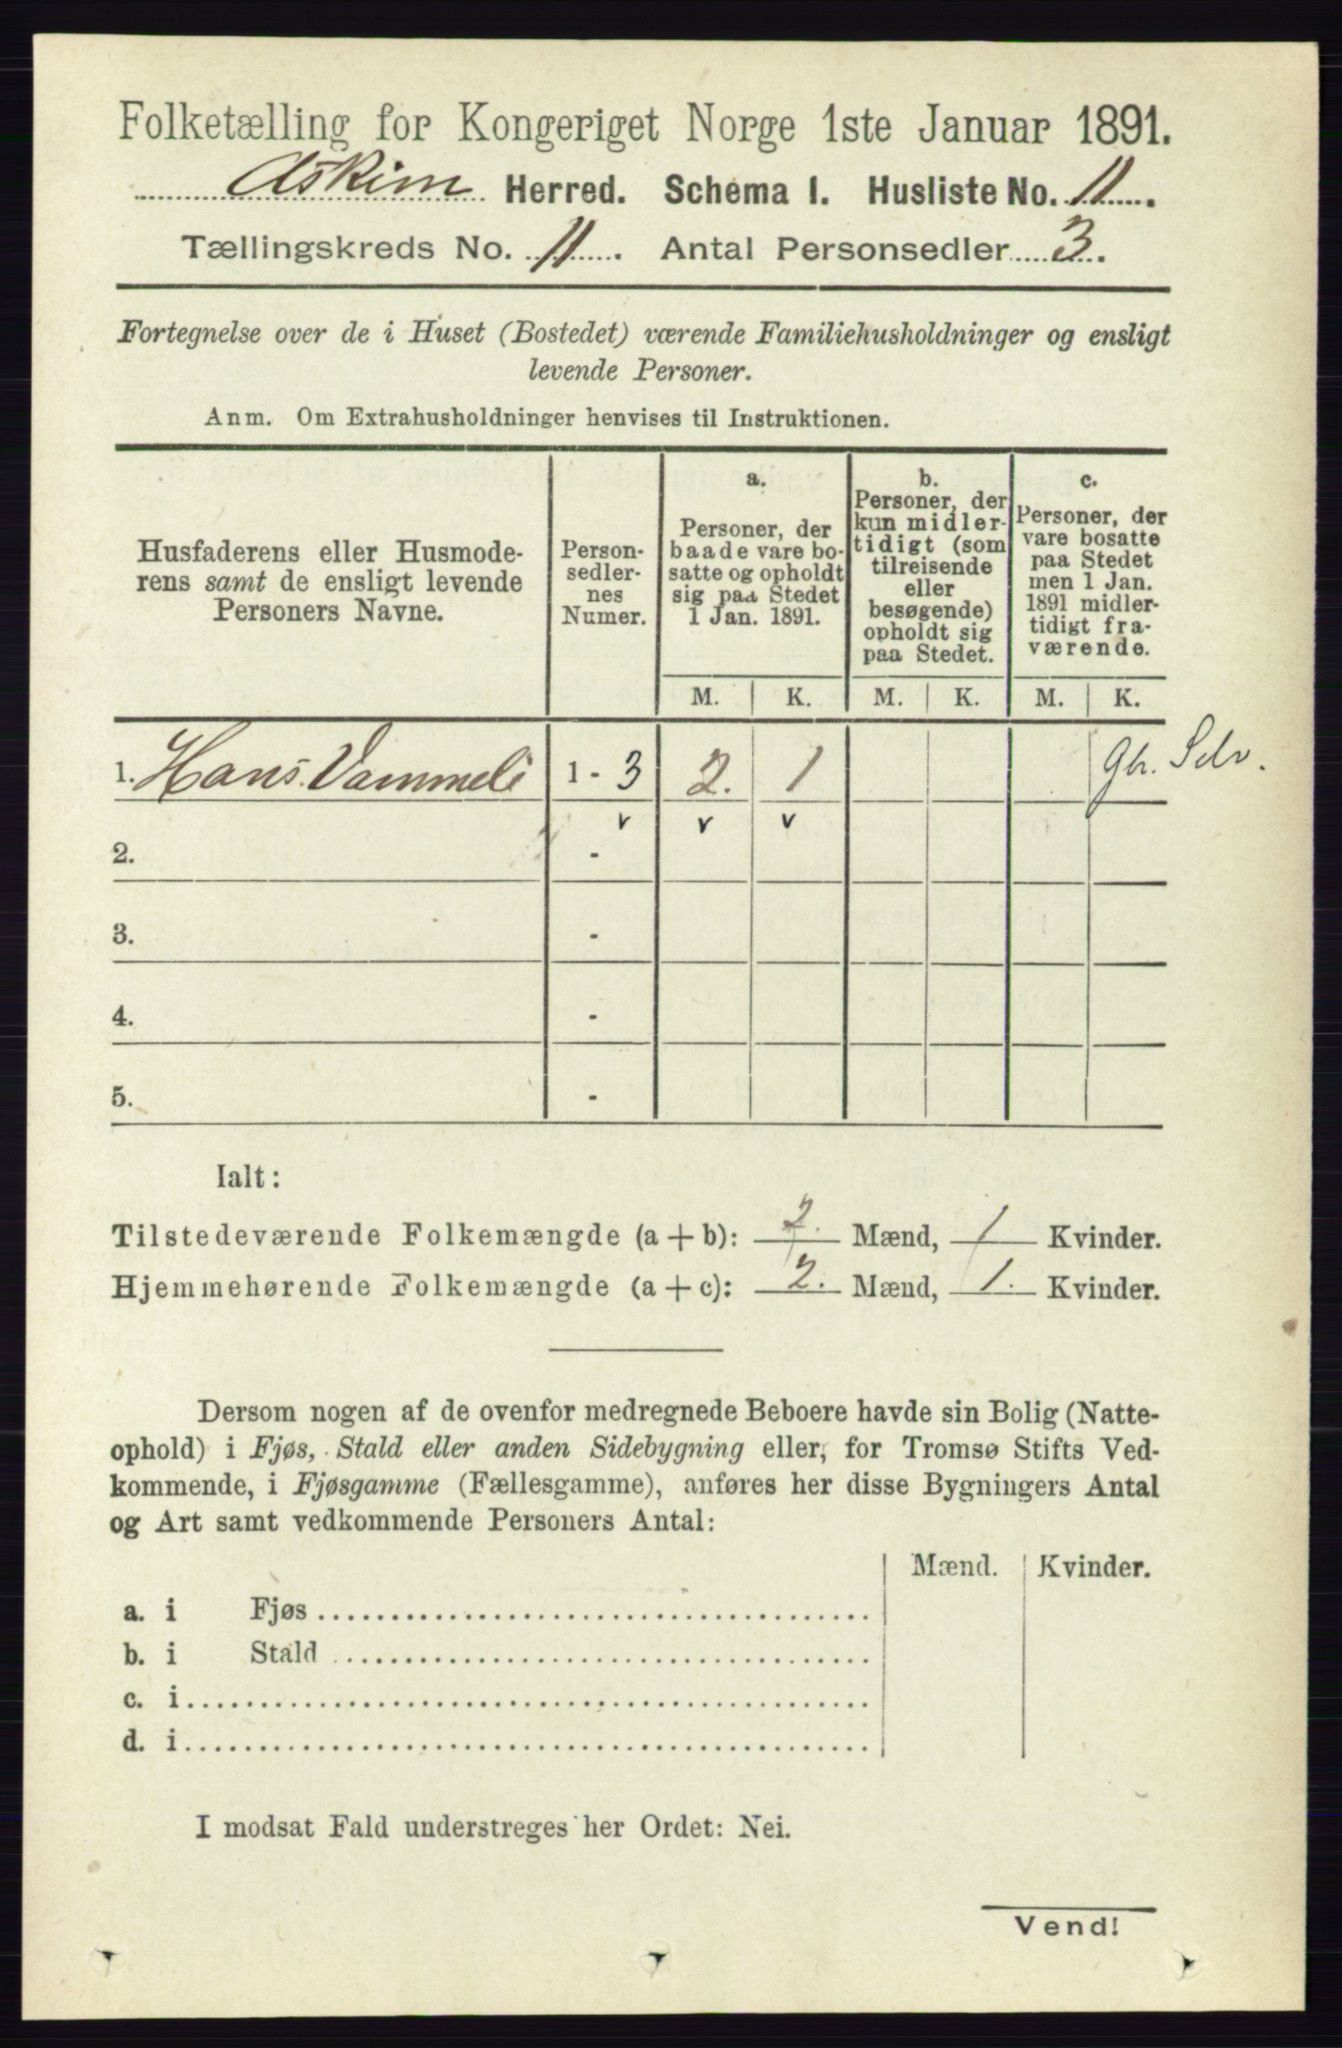 Folketælling for Kongeriget Norge 1ste Januar 1891.
Askim Herred. Schema I. Husliste No. 11.
Tællingskreds No. 11. Antal Personsedler 3.
Fortegnelse over de i Huset (Bostedet) værende Familiehusholdninger og ensligt
levende Personer.
Anm. Om Extrahusholdninger henvises til Instruktionen.
Husfaderens eller Husmode-
rens samt de ensligt levende
Personers Navne.
Person-
sedler-
nes
Numer.
a.
Personer, der
baade vare bo-
satte og opholdt
sig paa Stedet
1 Jan. 1891.
b.
Personer, der
kun midler-
tidigt (som
tilreisende
eller
besøgende)
opholdt sig
paa Stedet.
c.
Personer, der
vare bosatte
paa Stedet
men 1 Jan.
1891 midler-
tidigt fra-
værende.
M. K. M. K. M. K.
1. Hans Vammeli 1 - 3 2. 1 Gbr. Selv.
v v v
2. -
3. -
4. -
5. -
Ialt:
Tilstedeværende Folkemængde (a + b): 2. Mænd, 1 Kvinder.
Hjemmehørende Folkemængde (a + c): 2. Mænd, 1. Kvinder.
Dersom nogen af de ovenfor medregnede Beboere havde sin Bolig (Natte-
ophold) i Fjøs, Stald eller anden Sidebygning eller, for Tromsø Stifts Ved-
kommende, i Fjøsgamme (Fællesgamme), anføres her disse Bygningers Antal
og Art samt vedkommende Personers Antal:
Mænd. Kvinder.
a. i Fjøs
b. i Stald
c. i
d. i
I modsat Fald understreges her Ordet: Nei.
Vend!